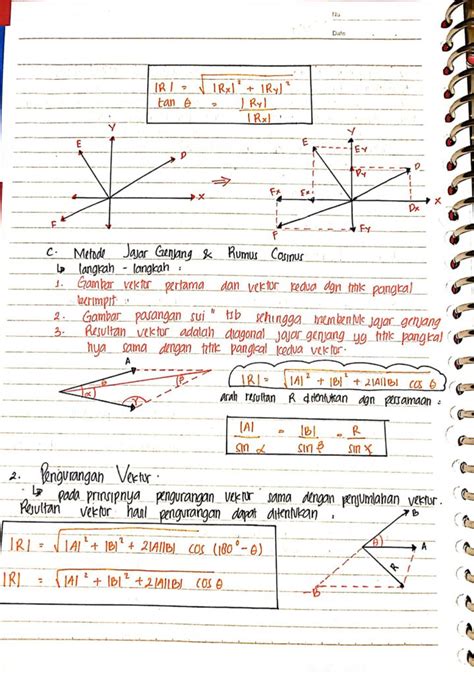 No
Date
|R| = √|Rx|² + |Ry|²
tan θ = |Ry|
|Rx|
Y
E
D
X
F
⇒
Y
E
Ey
Dy
D
Fx
Ex
X
Dx
F
Fy
C. Metode Jajar Genjang & Rumus Cosinus
↳ langkah - langkah :
1. Gambar vektor pertama dan vektor kedua dgn titik pangkal
berimpit.
2. Gambar pasangan sisi" tsb sehingga membentuk jajar genjang
3. Resultan vektor adalah diagonal jajar genjang yg titik pangkal
nya sama dengan titik pangkal kedua vektor.
A
θ
α
β
γ
|R| = √|A|² + |B|² + 2|A||B| cos θ
arah resultan R ditentukan dgn persamaan :
|A| = |B| = R
sin α sin β sin γ
2. Pengurangan Vektor.
↳ pada prinsipnya pengurangan vektor sama dengan penjumlahan vektor.
Resultan vektor hasil pengurangan dapat ditentukan :
|R| = √|A|² + |B|² + 2|A||B| cos (180° - θ)
|R| = √|A|² + |B|² + 2|A||B| cos θ
B
θ
A
R
-B